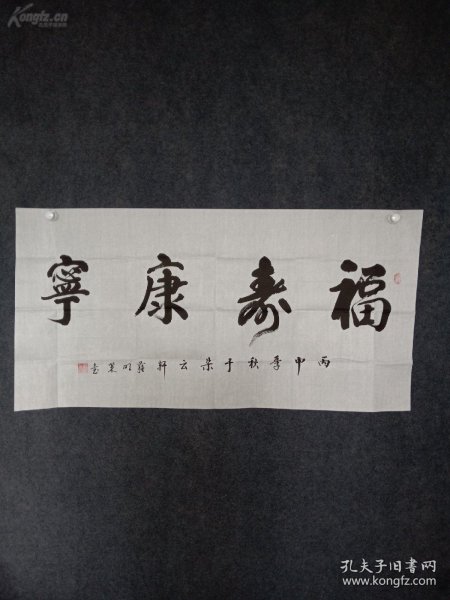 Kongfz.cn
福壽康寧
丙申季秋于朵云軒
孔夫子旧书网
www.kongfz.com